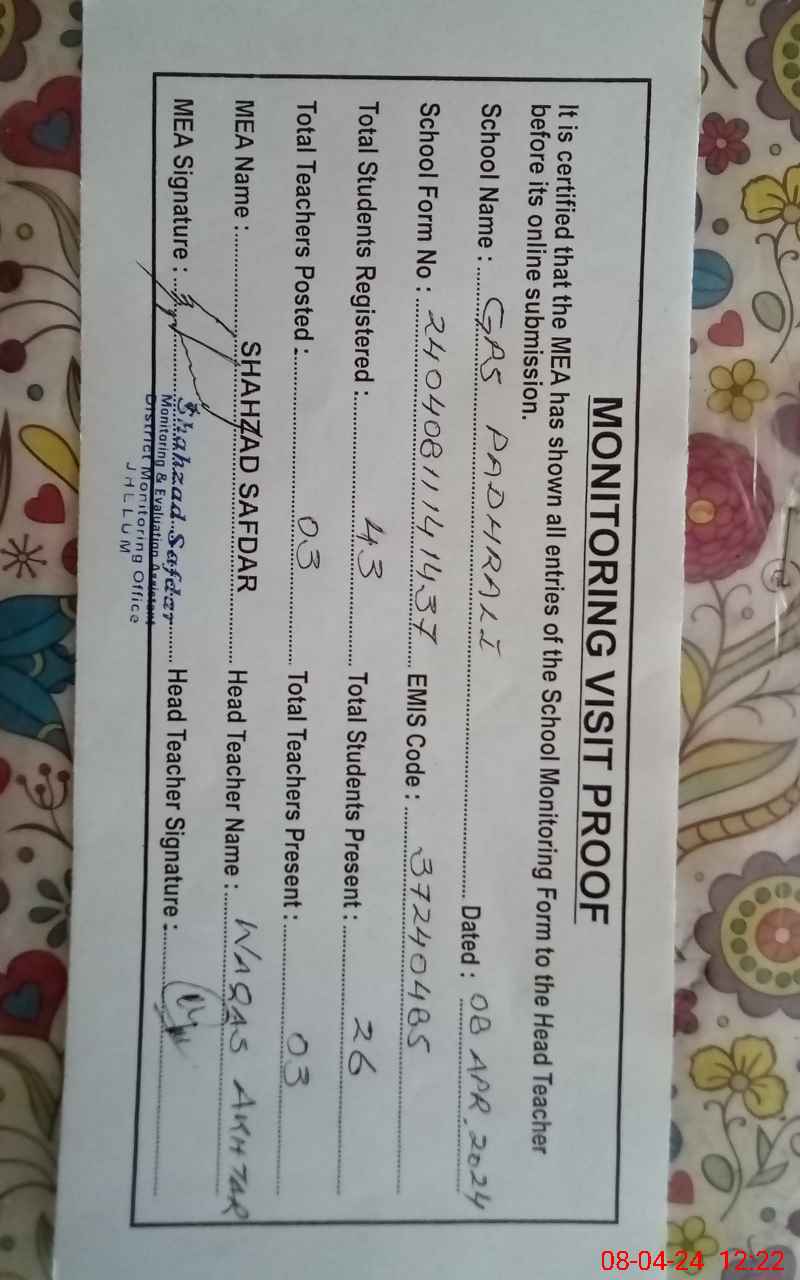 MONITORING VISIT PROOF
It is certified that the MEA has shown all entries of the School Monitoring Form to the Head Teacher
before its online submission.
School Name : GAS PADHRALI Dated : 08 APR, 2024
School Form No : 24040811141437 EMIS Code : 37240485
Total Students Registered : 43 Total Students Present : 26
Total Teachers Posted : 03 Total Teachers Present : 03
MEA Name : SHAHZAD SAFDAR Head Teacher Name : WAQAS AKHTAR
MEA Signature : Head Teacher Signature :
Shahzad Safdar
Monitoring & Evaluation Assistant
District Monitoring Office
JHELUM
08-04-24 12:22